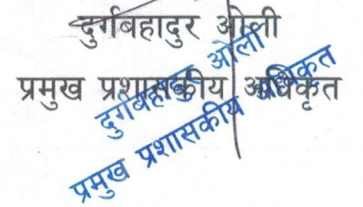 दुर्गबहादुर ओली
प्रमुख प्रशासकीय अधिकृत
दुर्गबहादुर ओली
प्रमुख प्रशासकीय अधिकृत